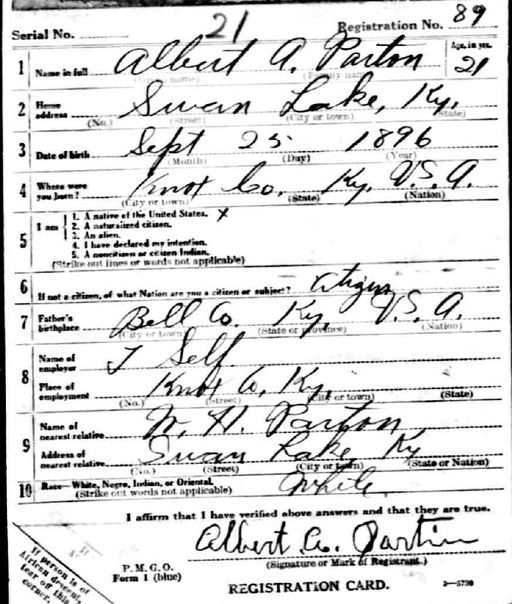 Serial No. 21 Registration No. 89
1 Name in full Albert A. Parton Age, in yrs. 21
(Given name) (Family name)
2 Home address Swan Lake, Ky.
(No.) (Street) (City or town) (State)
3 Date of birth Sept 25 1896
(Month) (Day) (Year)
4 Where were you born? Knox Co. Ky. U.S.A.
(City or town) (State) (Nation)
5 I am
1. A native of the United States. x
2. A naturalized citizen.
3. An alien.
4. I have declared my intention.
5. A noncitizen or citizen Indian.
(Strike out lines or words not applicable)
6 If not a citizen, of what Nation are you a citizen or subject? Citizen
7 Father's birthplace Bell Co. Ky, U.S.A.
(City or town) (State or province) (Nation)
8 Name of employer Self
Place of employment Knox Co, Ky.
(No.) (Street) (City or town) (State)
9 Name of nearest relative W. H. Parton
Address of nearest relative Swan Lake, Ky
(No.) (Street) (City or town) (State or Nation)
10 Race—White, Negro, Indian, or Oriental. White.
(Strike out words not applicable)
I affirm that I have verified above answers and that they are true.
Albert A. Partin
(Signature or Mark of Registrant.)
P. M. G. O.
Form 1 (blue)
REGISTRATION CARD.
If person is of
African descent,
tear off this
corner.